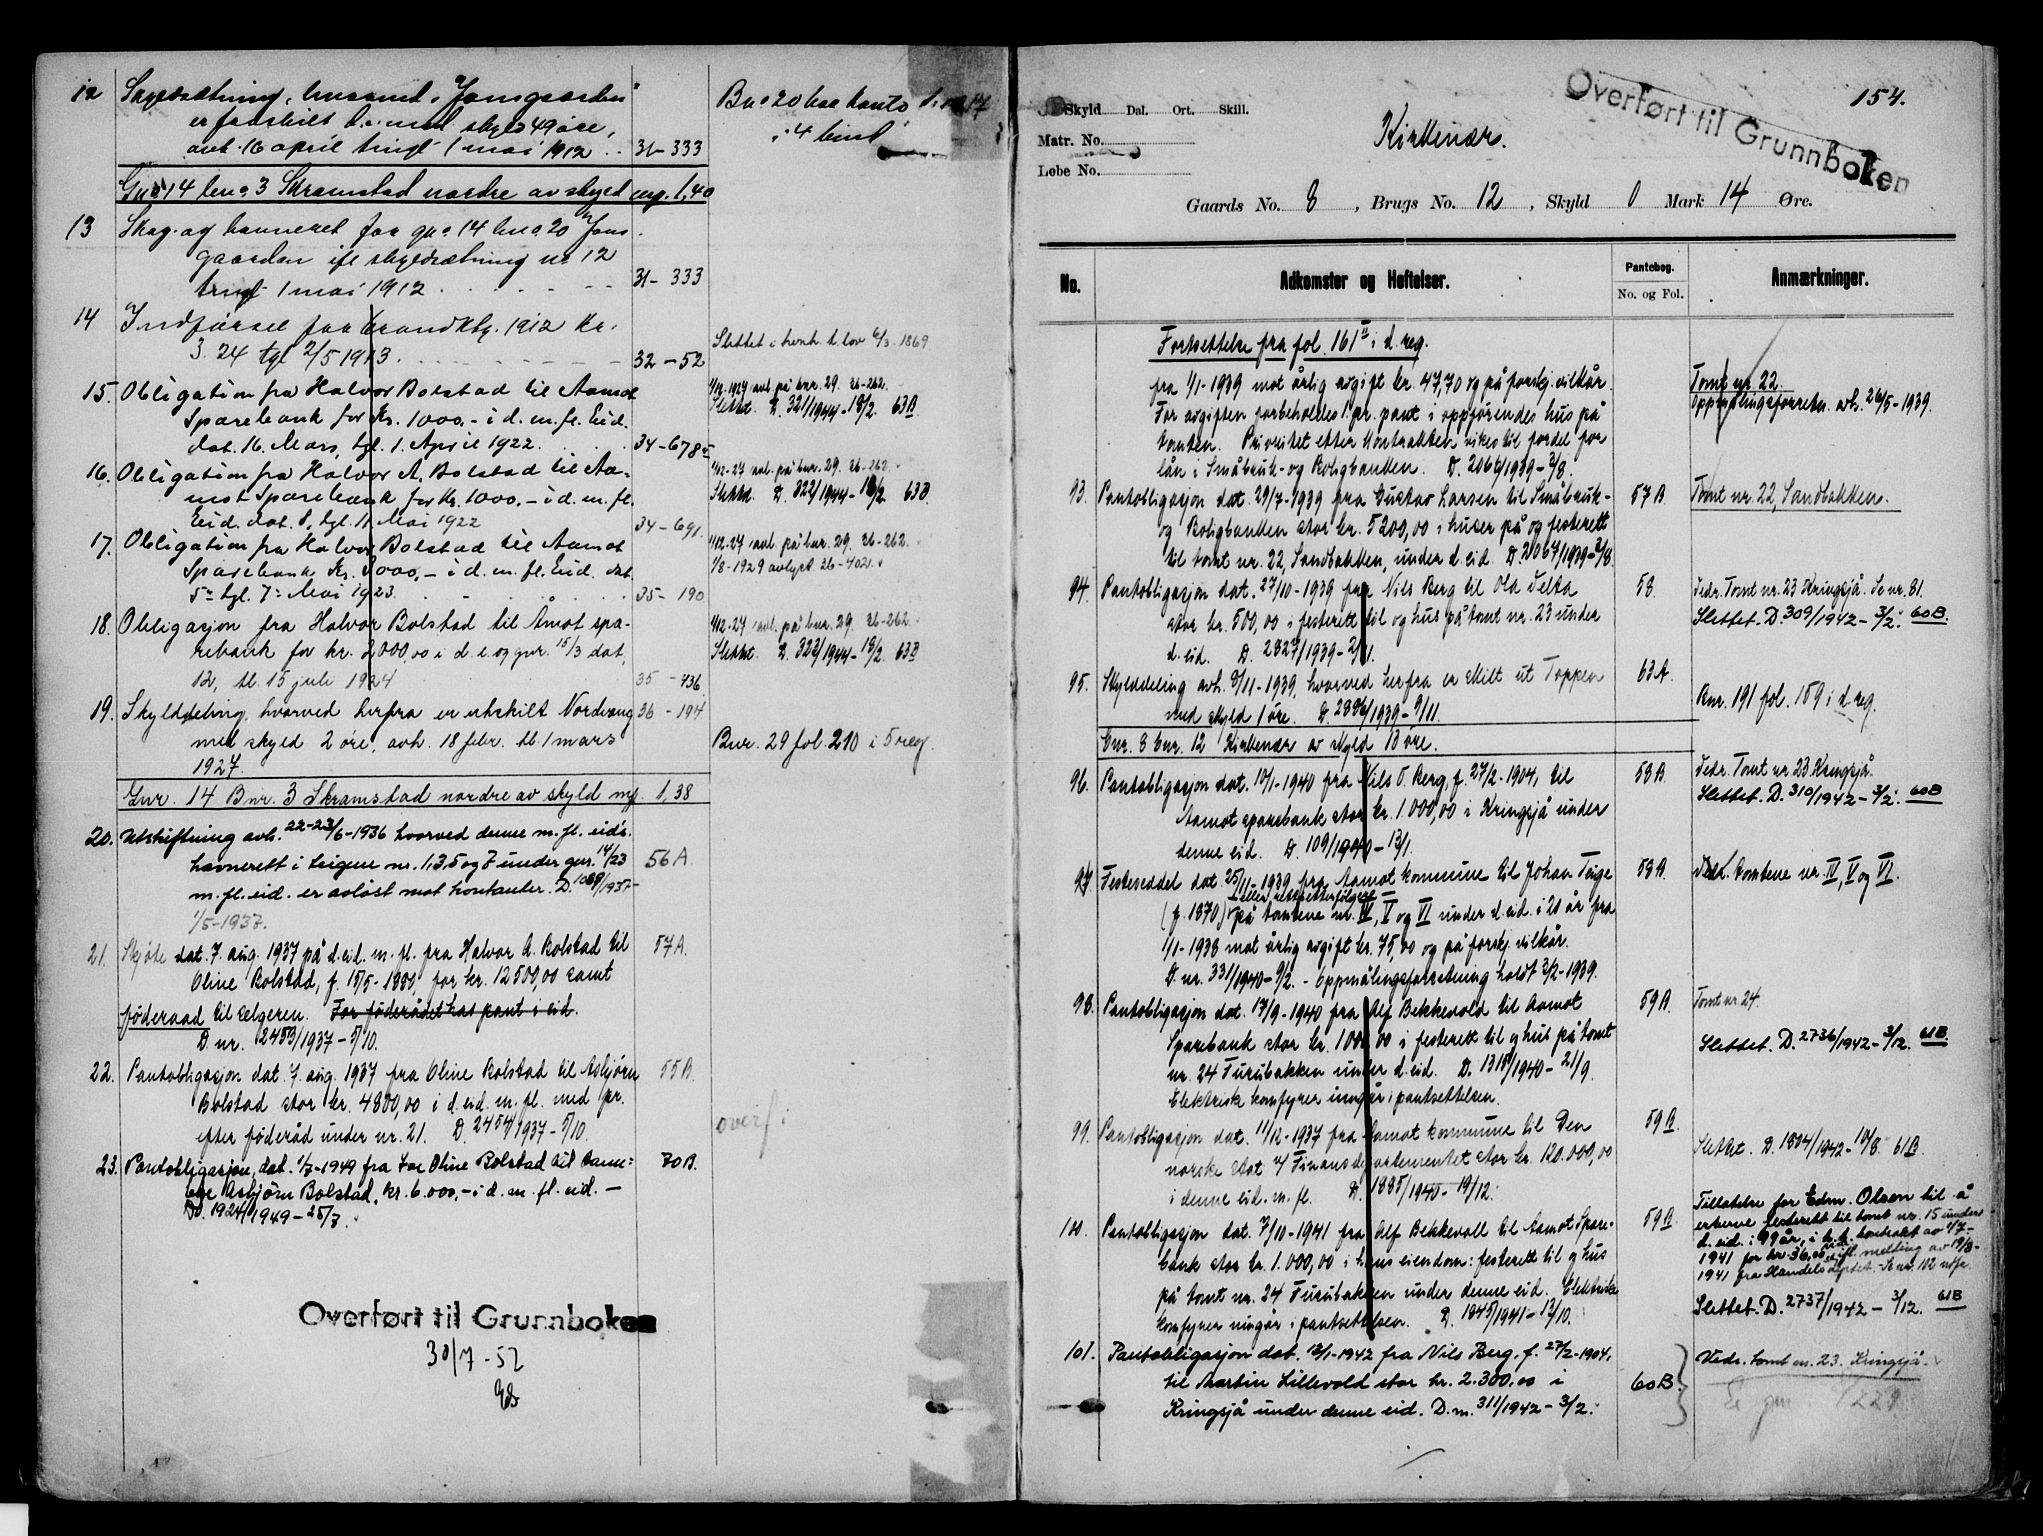 12 Skyldsætning, hvorved "Jonsgaarden"
er fraskilt b.n. med skyld 49 øre,
avh. 16 april tingl 1 mai 1912 .. 31-333
Bno 20 har konto
i 4 bind
Gno 14 bno 3 Skramstad nordre av skyld mrk. 1,40
13 Skog- og havneret for gno 14 bno 20 Jons
gaarden ifl skyldsætning nr 12
tingl 1 mai 1912 31-333
14 Indførsel for Brandktg. 1912 Kr.
3.24 tgl 2/5 1913. 32-52
Slettet i henh. t. lov 6/3. 1869
15. Obligation fra Halvor Bolstad til Aamot
Sparebank for Kr. 1000.- i d. m. fl. Eid.
dat. 16. Mars, tgl. 1. April 1922. 34-678
1/12-1927 avl. på bnr. 29. 26-262.
Slettet. D. 321/1944-18/2. 63B
16. Obligation fra Halvor A. Bolstad til Aa-
mot Sparebank for Kr. 1000.- i d. m. fl.
Eid. dat. 8, tgl. 11. Mai 1922 34-691.
1/12-27 avl. på bnr. 29. 26-262.
Slettet. D. 322/1944-18/2. 63B.
17. Obligation fra Halvor Bolstad til Aamot
Sparebank Kr. 3000,- i d. m. fl. Eid. dat.
5- tgl. 7- Mai 1923. 35-190
1/12-27 avl. på bnr. 29. 26-262.
1/8-1929 avlyst 26-402.
18. Obligasjon fra Halvor Bolstad til Åmot spa-
rebank for kr. 2000,00 i d. e. og gnr. 15/3 dat,
12, tl. 15 juli 1924 35-436
1/12-27 avl. på bnr. 29. 26-262.
Slettet. D. 323/1944-18/2. 63B
19. Skylddeling, hvorved herfra er utskilt Nordvang 36-194
med skyld 2 øre, avh. 18 febr. tl. 1 mars
1927.
Bnr. 29 fol. 210 i 5 reg.
Gnr. 14 Bnr. 3 Skramstad nordre av skyld mrk 1,38
20. Utskiftning avh. 22-23/6-1936 hvorved denne m. fl. eid's.
havnerett i teigene nr. 1,3,5 og 7 under gnr. 14/23 56A.
m. fl. eid. er avløst mot kontanter. D. 1068/1937-
1/5-1937.
21. Skjøte dat. 7. aug. 1937 på d. eid. m. fl. fra Halvor A. Bolstad til 57A.
Oline Bolstad, f. 15/5-1880, for kr. 12500,00 samt
føderaad til selgeren. For føderådet has pant i eid.
D. nr. 2453/1937-5/10.
22. Pantobligasjon dat. 7. aug. 1937 fra Oline Bolstad til Asbjørn 55B.
Bolstad stor kr. 4800,00 i d. eid. m. fl. med pr.
efter føderåd under nr. 21. D. 2454/1937-5/10.
overf:
23. Pantobligasjon, dat. 1/7-1949 fra Oline Bolstad til
Asbjørn Bolstad, kr. 6.000,- i d. m. fl. eid. - 70B.
Db. 1924/1949-25/7.
Overført til Grunnboken
30/7-52
154.
Overført til Grunnboken
Skyld Dal. Ort. Skill.
Matr. No.
Løbe No.
Kirkenær.
Gaards No. 8, Brugs No. 12, Skyld 0 Mark 14 Øre.
No. Adkomster og Heftelser. Pantebog. No. og Fol. Anmærkninger.
Fortsettelse fra fol. 161 II i d. reg.
fra 1/1-1939 mot årlig avgift kr. 47,70 og på forskj. vilkår.
For avgiften forbeholdes 1. pr. pant i oppførendes hus på
tomten. Prioritet etter kontrakten vikes til fordel for
lån i Småbruk- og Boligbanken. D. 2066/1939-3/8.
Tomt nr. 22.
Oppmålingsforretn. avh. 26/5-1939.
93. Pantobligasjon dat. 29/7-1939 fra Gustav Larsen til Småbruk- 57B
og Boligbanken stor kr. 5200,00 i huser på og festerett
til tomt nr. 22, Sandbakken, under d. eid. D. 2067/1939-3/8.
Tomt nr. 22, Sandbakken.
94. Pantobligasjon dat. 27/10-1939 fra Nils Berg til Ola Telta 58.
stor kr. 500,00 i festerett til og hus på tomt nr. 23 under
d. eid. D. 2827/1939-2/11.
Vedr. Tomt nr. 23 Kringsjå. Se nr. 81.
Slettet. D. 309/1942-3/2. 60B.
95. Skylddeling avh. 8/11-1939, hvorved herfra er skilt ut Toppen 63A.
med skyld 1 øre. D. 2886/1939-9/11.
Bnr. 191 fol. 159 i d. reg.
Gnr. 8 bnr. 12 Kirkenær av skyld 13 øre.
96. Pantobligasjon dat. 10/1-1940 fra Nils O. Berg, f. 27/2-1904, til 58B.
Aamot sparebank stor kr. 1.000,00 i Kringsjå under
denne eid. D. 109/1940-13/1.
Vedr. Tomt nr 23 Kringsjå.
Slettet. D. 310/1942-3/2. 60B
97. Festeseddel dat. 25/11-1939 fra Aamot kommune til Johan Teige 58B.
eller rettsetterfølgere
(f. 1870) på tomtene nr. IV, V og VI under d. eid. i 20 år fra
1/1-1938 mot årlig avgift kr. 75,00 og på forskj. vilkår.
D. nr. 331/1940-9/2. - Oppmålingsforretning holdt 2/2-1939.
Vedr. tomtene nr. IV, V og VI.
98. Pantobligasjon dat. 17/9-1940 fra Alf Bekkevold til Aamot 59A.
Sparebank stor kr. 1000,00 i festerett til og hus på tomt
nr. 24 Furubakken under d. eid. D. 1315/1940-21/9.
Elektriske komfyrer inngår i pantsettelsen.
Tomt nr. 24.
Slettet. D. 2736/1942-3/12. 61B.
99. Pantobligasjon dat. 11/12-1937 fra Aamot kommune til Den 59B.
norske stat v/ Finansdepartementet stor kr. 120.000,00
i denne eid. m. fl. D. 1885/1940-19/12.
Slettet. D. 1804/1942-10/8. 61B.
100. Pantobligasjon dat. 7/10-1941 fra Alf Bekkevoll til Aamot Spare- 59B.
bank stor kr. 1.000,00 i hans eiendom: festerett til og hus
på tomt nr. 24 Furubakken under denne eid. Elektriske
komfyrer inngår i pantsettelsen. D. 1845/1941-13/10.
Tillatelse for Edm. Olsen til å
erverve festerett til tomt nr. 15 under
d. eid. i 99 år, i h. h. kontrakt av 1/7-
1941 for kr. 36,00 ifl. melding av 19/8-
1941 fra Handelsdeptet. Se nr. 112 ndfr.
Slettet. D. 2737/1942-3/12. 61B
101. Pantobligasjon dat. 12/1-1942 fra Nils Berg, f. 27/2-1904,
til Martin Lillevold stor kr. 2.300.00 i 60B.
Kringsjå under denne eid. D. nr. 311/1942-3/2.
Vedr. tomt nr. 23. Kringsjå.